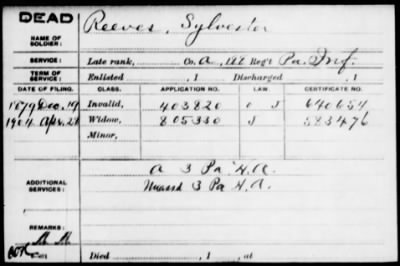 DEAD
NAME OF SOLDIER: Reeves, Sylvester
SERVICE: Late rank, Co. A, 188 Reg't Pa. Inf.
TERM OF SERVICE: Enlisted , 1 Discharged , 1
DATE OF FILING. CLASS. APPLICATION NO. LAW. CERTIFICATE NO.
1879 Dec. 19 Invalid, 403820 640654
1904 Apr. 24 Widow, 805330 583476
Minor,
ADDITIONAL SERVICES: A 3 Pa H.A.
3 Pa H.A.
REMARKS:
Died , 1 , at